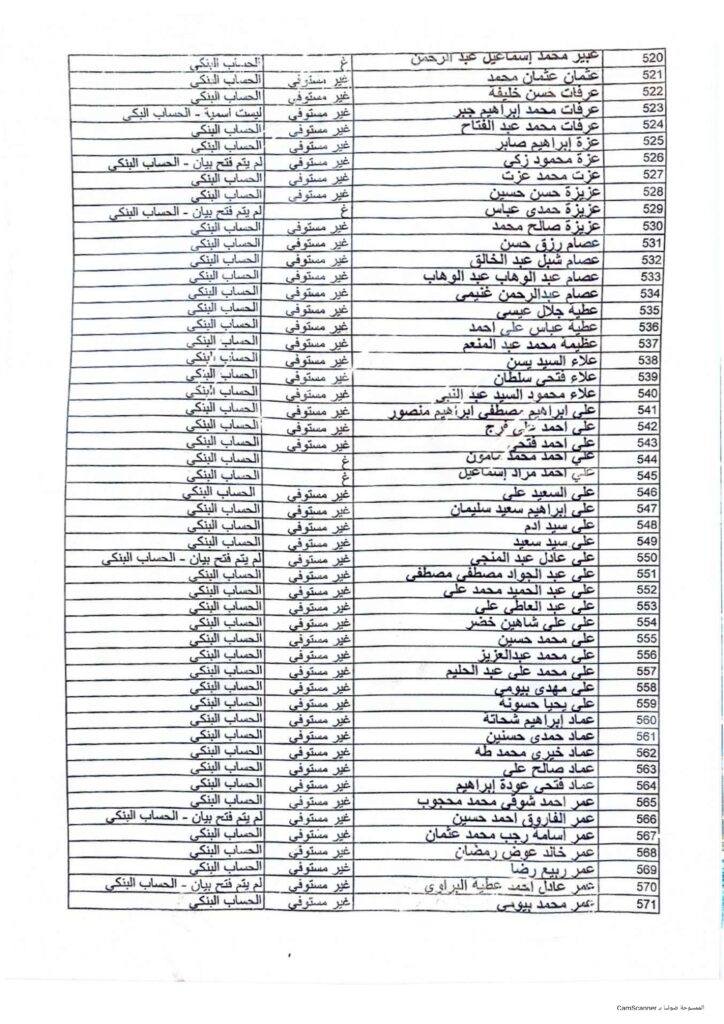 520 عبير محمد إسماعيل عبد الرحمن غ الحساب البنكي
521 عثمان عثمان محمد غير مستوفي الحساب البنكي
522 عرفات حسن خليفة غير مستوفي الحساب البنكي
523 عرفات محمد إبراهيم جبر غير مستوفي ليست أسمية - الحساب البكي
524 عرفات محمد عبد الفتاح غير مستوفي الحساب البنكي
525 عزة إبراهيم صابر غير مستوفي الحساب البنكي
526 عزة محمود زكي غير مستوفي لم يتم فتح بيان - الحساب البنكي
527 عزت محمد عزت غير مستوفي الحساب البنكي
528 عزيزة حسن حسين غير مستوفي الحساب البنكي
529 عزيزة حمدى عباس غ لم يتم فتح بيان - الحساب البنكي
530 عزيزة صالح محمد غير مستوفي الحساب البنكي
531 عصام رزق حسن غير مستوفي الحساب البنكي
532 عصام شبل عبد الخالق غير مستوفي الحساب البنكي
533 عصام عبد الوهاب عبد الوهاب غير مستوفي الحساب البنكي
534 عصام عبدالرحمن غنيمى غير مستوفي الحساب البنكي
535 عطية جلال عيسي غير مستوفي الحساب البنكي
536 عطية عباس على احمد غير مستوفي الحساب البنكي
537 عظيمة محمد عبد المنعم غير مستوفي الحساب البنكي
538 علاء السيد يسن غير مستوفي الحساب البنكي
539 علاء فتحى سلطان غير مستوفي الحساب البنكي
540 علاء محمود السيد عبد النبي غير مستوفي الحساب البنكي
541 على ابراهيم مصطفى ابراهيم منصور غير مستوفي الحساب البنكي
542 على احمد على فرج غير مستوفي الحساب البنكي
543 على احمد فتحي غير مستوفي الحساب البنكي
544 علي احمد محمد مأمون غ الحساب البنكي
545 علي احمد مراد إسماعيل غ الحساب البنكي
546 على السعيد على غير مستوفي الحساب البنكي
547 على إبراهيم سعيد سليمان غير مستوفي الحساب البنكي
548 على سيد ادم غير مستوفي الحساب البنكي
549 على سيد سعيد غير مستوفي الحساب البنكي
550 على عادل عبد المنجى غير مستوفي لم يتم فتح بيان - الحساب البنكي
551 على عبد الجواد مصطفى مصطفى غير مستوفي الحساب البنكي
552 على عبد الحميد محمد على غير مستوفي الحساب البنكي
553 على عبد العاطى على غير مستوفي الحساب البنكي
554 على على شاهين خضر غير مستوفي الحساب البنكي
555 على محمد حسين غير مستوفي الحساب البنكي
556 على محمد عبدالعزيز غير مستوفي الحساب البنكي
557 على محمد على عبد الحليم غير مستوفي الحساب البنكي
558 على مهدى بيومى غير مستوفي الحساب البنكي
559 على يحيا حسونة غير مستوفي الحساب البنكي
560 عماد إبراهيم شحاتة غير مستوفي الحساب البنكي
561 عماد حمدى حسنين غير مستوفي الحساب البنكي
562 عماد خيرى محمد طه غير مستوفي الحساب البنكي
563 عماد صالح على غير مستوفي الحساب البنكي
564 عماد فتحى عودة إبراهيم غير مستوفي الحساب البنكي
565 عمر احمد شوقى محمد محجوب غير مستوفي الحساب البنكي
566 عمر الفاروق احمد حسين غير مستوفي لم يتم فتح بيان - الحساب البنكي
567 عمر اسامة رجب محمد عثمان غير مستوفي الحساب البنكي
568 عمر خالد عوض رمضان غير مستوفي الحساب البنكي
569 عمر ربيع رضا غير مستوفي الحساب البنكي
570 عمر عادل احمد عطية البراوى غير مستوفي لم يتم فتح بيان - الحساب البنكي
571 عمر محمد بيومى غير مستوفي الحساب البنكي
الممسوحة ضوئيا بـ CamScanner